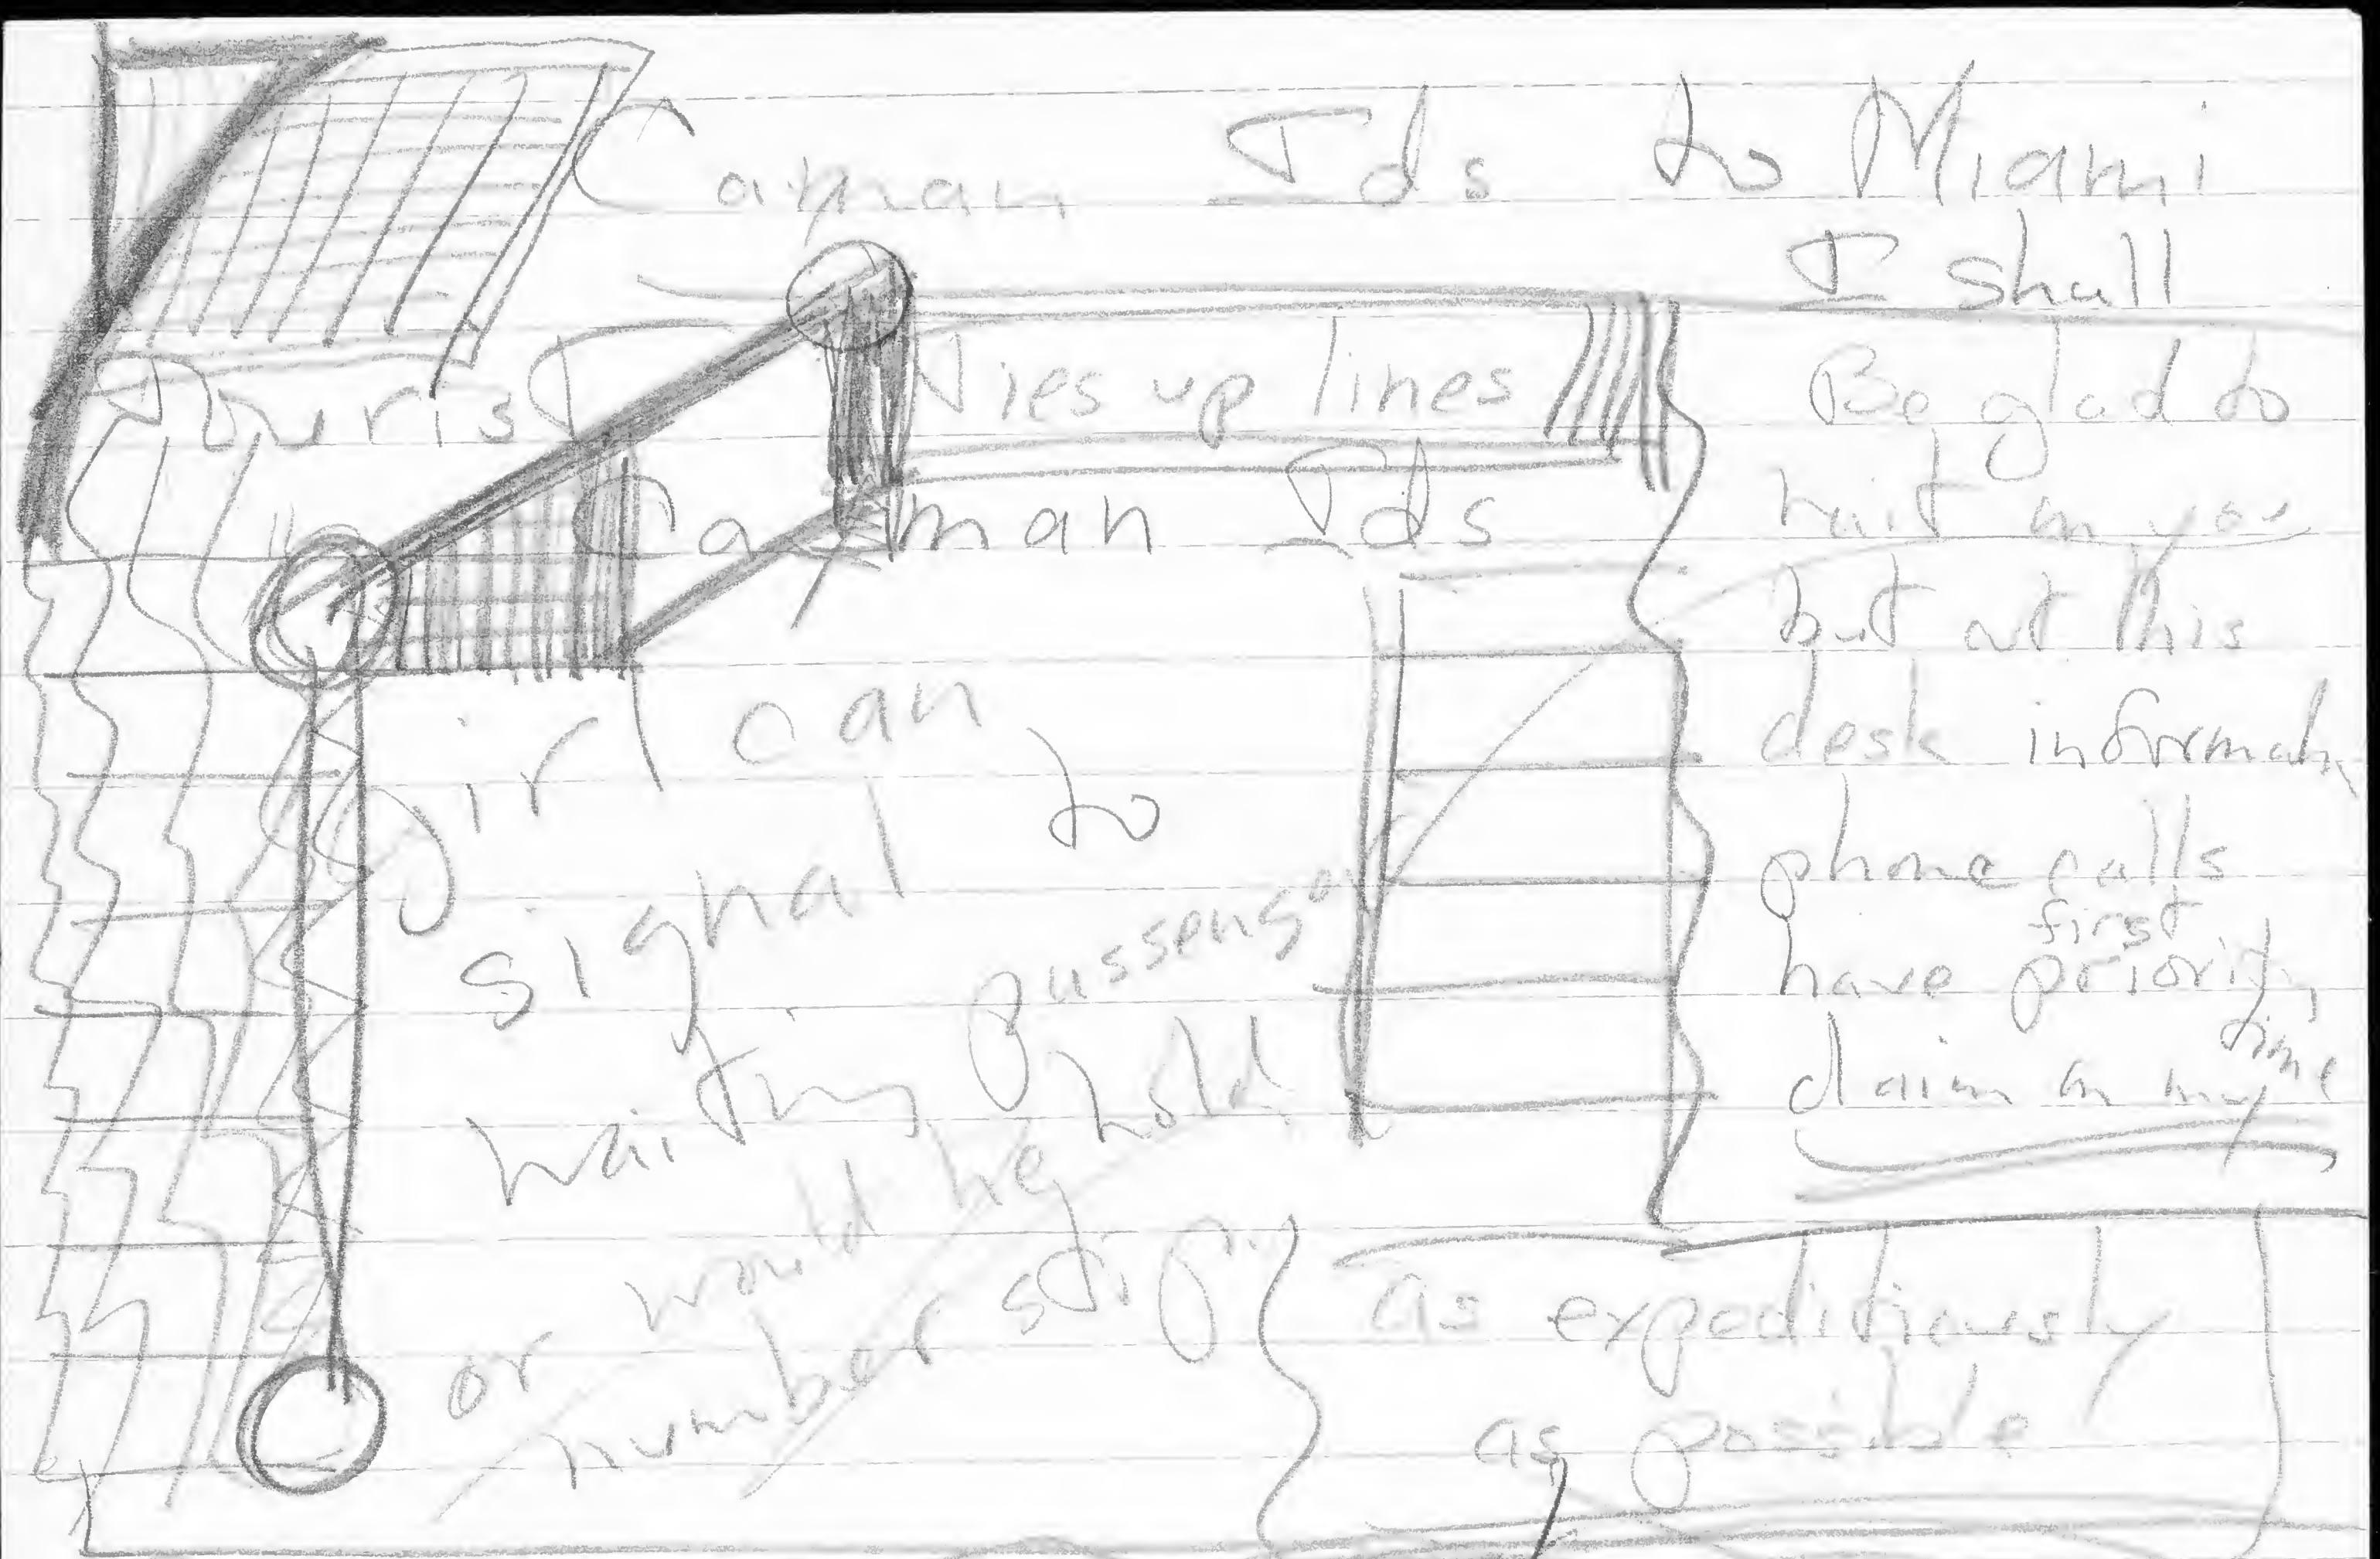 Cayman Ids to Miami
Tourist Ties up lines
Cayman Ids
girl can
signal to
waiting passenger
or would he hold
number strip
I shall
Be glad to
wait on you
but at this
desk informatn
phone calls
have first priority
claim on my time
as expeditiously
as possible